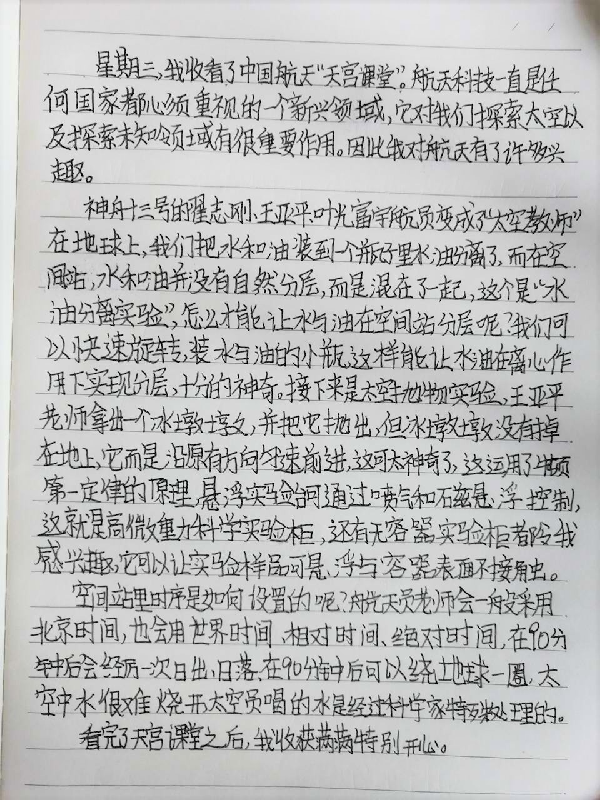 星期三,我收看了中国航天“天宫课堂”。航天科技一直是任
何国家都必须重视的一个新兴领域,它对我们探索太空以
及探索未知领域有很重要作用。因此我对航天有了许多兴
趣。
神舟十三号的翟志刚、王亚平、叶光富宇航员变成了“太空教师”
在地球上,我们把水和油装到一个瓶子里水油分离了,而在空
间站,水和油并没有自然分层,而是混在了一起,这个是“水
油分离实验”,怎么才能让水与油在空间站分层呢?我们可
以快速旋转装水与油的小瓶,这样能让水油在离心作
用下实现分层,十分的神奇。接下来是太空抛物实验、王亚平
老师拿出一个冰墩墩,并把它抛出,但冰墩墩没有掉
在地上,它而是沿原有方向匀速前进,这可太神奇了,这运用了牛顿
第一定律的原理,悬浮实验台可通过喷气和石磁悬浮控制,
这就是高微重力科学实验柜,还有无容器实验柜都令我
感兴趣,它可以让实验样品可悬浮与容器表面不接触。
空间站里时序是如何设置的呢?航天员老师会一般采用
北京时间,也会用世界时间、相对时间、绝对时间,在90分
钟后会经历一次日出、日落,在90分钟后可以绕地球一圈,太
空中水很难烧开,太空员喝的水是经过科学家特殊处理的。
看完了天宫课堂之后,我收获满满特别开心。